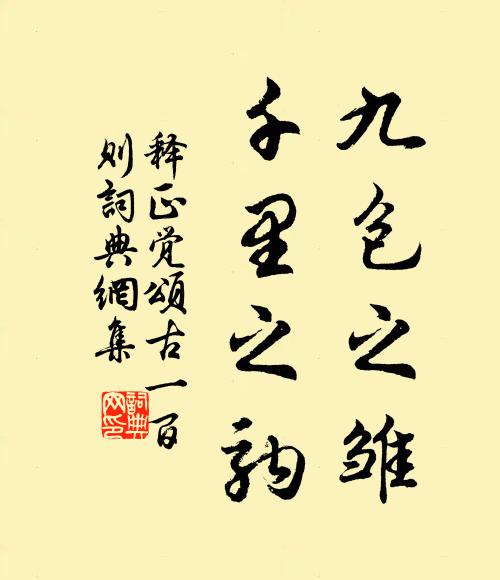 九包之雏
千里之驹
释正觉頌古一百
则詞典網集
詞典
网印